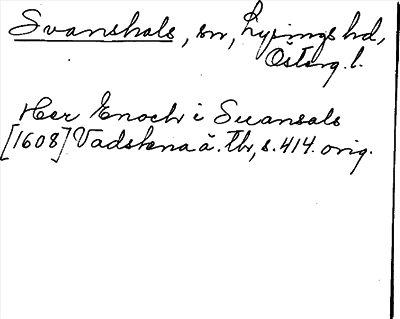 Svanshals, sn, Lysings hd,
Österg. l.
Her Enoch i Suansals
[1608] Vadstena ä. Tb, s. 414. orig.